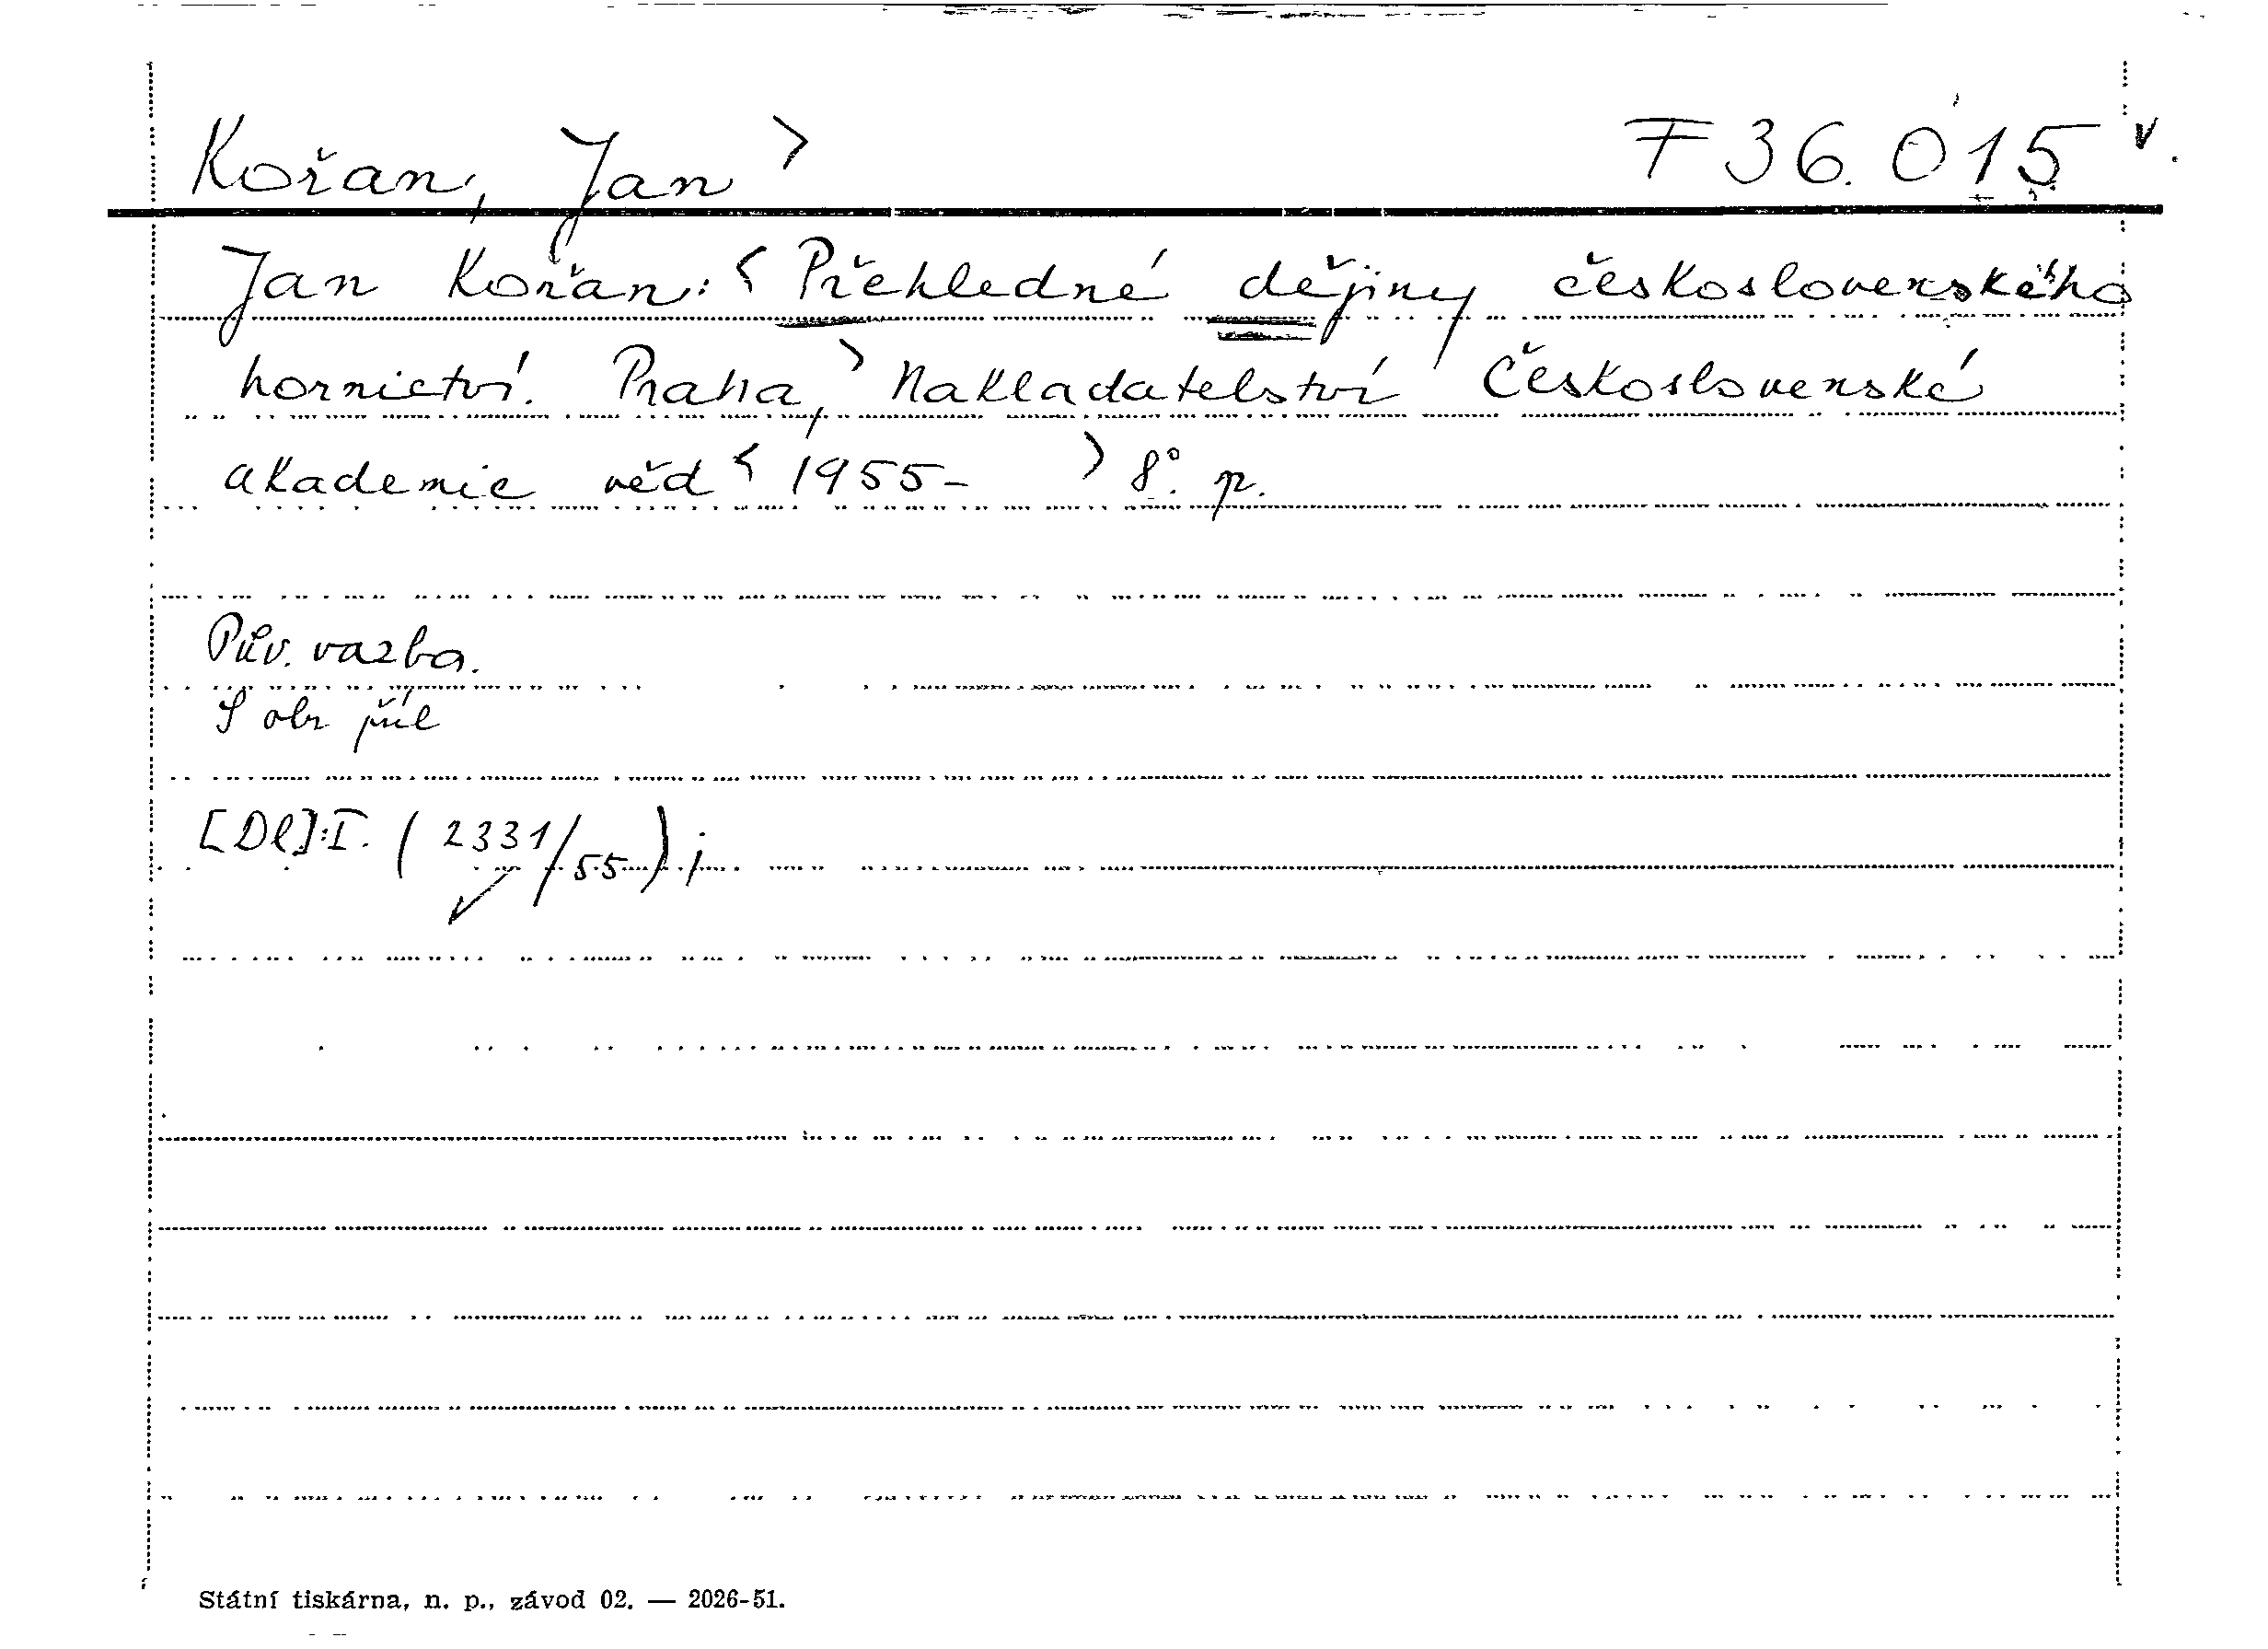 Kořan, Jan > F 36.015 v.
Jan Kořan: < Přehledné dějiny československého
hornictví. Praha, > Nakladatelství Československé
akademie věd < 1955- > 8°. p.
Pův. vazba.
S obr příl
[Dl]: I. (2331/55);
Státní tiskárna, n. p., závod 02. — 2026-51.